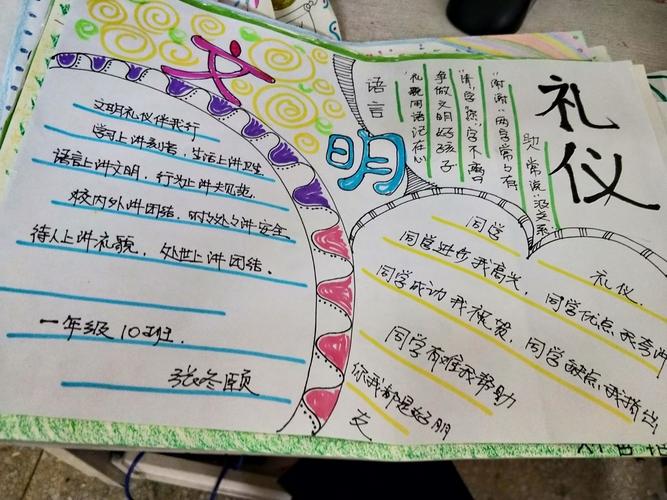 文明
礼仪
文明礼仪伴我行
学习上讲刻苦，生活上讲卫生
语言上讲文明，行为上讲规范
校内外讲团结，时时处处讲安全
待人上讲礼貌，处世上讲团结。
一年级10班.
张冬颐
语言
礼貌用语记在心
争做文明好孩子
"请"字"您"字不离口
"谢谢"两字常口有
常说"没关系"
同学
礼仪.
同学进步我高兴，同学优点我夸
同学成功我祝贺，同学缺点我指出
同学有难我帮助
你我都是好朋
友